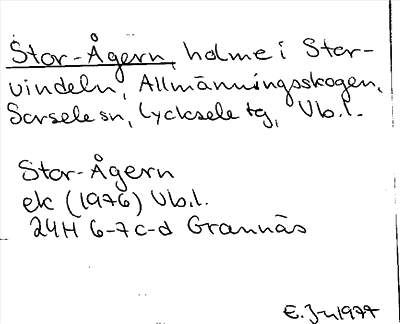 Stor-Ågern, holme i Stor-
vindeln, Allmänningsskogen,
Sorsele sn, Lycksele tg, Vb.l.
Stor-Ågern
ek (1976) Vb.l.
24H 6-7c-d Grannäs
E. Jn 1977